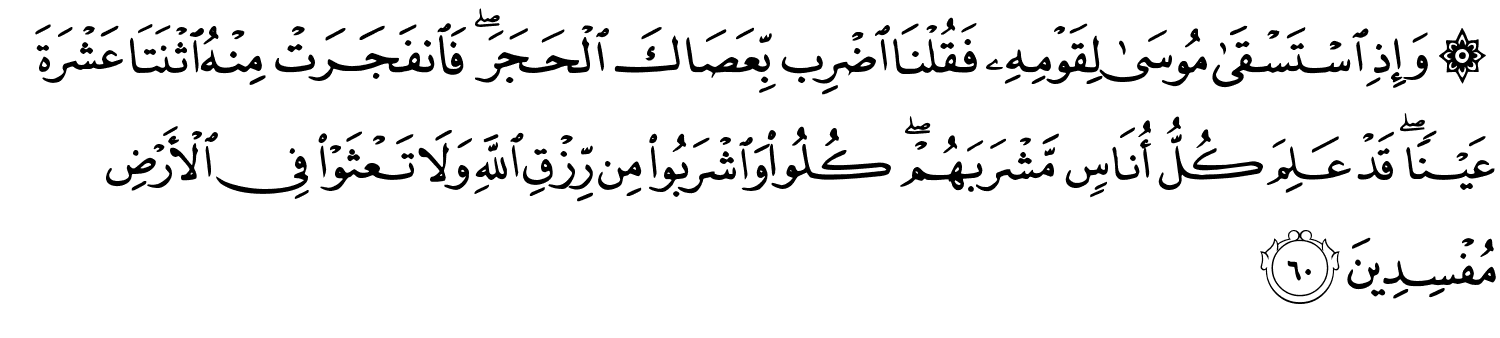 ۞ وَإِذِ ٱسۡتَسۡقَىٰ مُوسَىٰ لِقَوۡمِهِۦ فَقُلۡنَا ٱضۡرِب بِّعَصَاكَ ٱلۡحَجَرَۖ فَٱنفَجَرَتۡ مِنۡهُ ٱثۡنَتَا عَشۡرَةَ
عَيۡنٗاۖ قَدۡ عَلِمَ كُلُّ أُنَاسٖ مَّشۡرَبَهُمۡۖ كُلُواْ وَٱشۡرَبُواْ مِن رِّزۡقِ ٱللَّهِ وَلَا تَعۡثَوۡاْ فِي ٱلۡأَرۡضِ
مُفۡسِدِينَ ٦٠